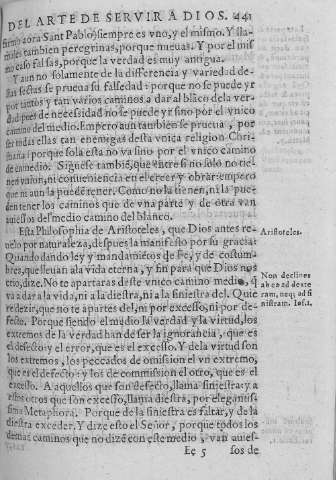 DEL ARTE DE SERVIR A DIOS. 441
aora Sant Pablo) siempre es vno, y el mismo. Y lla-
males tambien peregrinas, porque nueuas. Y por el mis
mo caso falsas, porque la verdad es muy antigua.
Y aun no solamente de la differencia y variedad de-
stas sectas se prueua su falsedad: porque no se puede yr
por tantos y tan varios caminos a dar al blãco dela ver-
dad pues de necessidad no se puede yr sino por el vnico
camino del medio. Empero aun tambiẽ se prueua, por
ser todas ellas tan enemigas desta vnica religion Chri-
stiana: porque sola esta no va sino por el vnico camino
de en medio. Siguese tambiẽ, que entre si no solo no tie-
nen vnion, ni conueniencia en el creer y obrar: empero
que ni aun la puede tener. Como no la tienen, ni la pue-
den tener los caminos que de vna parte y de otra van
auiessos del medio camino del blanco.
Esta Philosophia de Aristoteles, que Dios antes re-
uelo por naturaleza, despues la manifesto por su gracia:
Quando dando ley y mandamiẽtos de Fe, y de costum-
bres, que lleuan ala vida eterna, y fin para que Dios nos
crio, dize. No te apartaras deste vnico camino medio, q̃
va a dar a la vida, ni a la diestra, ni a la siniestra del. Quie
re dezir, que no te apartes del, ni por excesso, ni por de-
fecto. Porque siendo el medio la verdad y la virtud, los
extremos de la verdad han de ser la ignorancia, que es
el defecto: y el error, que es el excesso. Y dela virtud son
los extremos, los peccados de omission el vn extremo,
que es el defecto: y los de commission el otro, que es el
excesso. A aquellos que son defecto, llama siniestra: y a
estos otros que son excesso, llama diestra, por elegantis-
sima Metaphora. Porque de la siniestra es faltar, y de la
diestra exceder. Y dize esto el Señor, porque todos los
demas caminos que no dizẽ con este medio, van auies-
Ee 5 sos de
Aristoteles.
Non declines
ab ea ad dexte
ram, neq; ad si
nistram. Ios. 1.